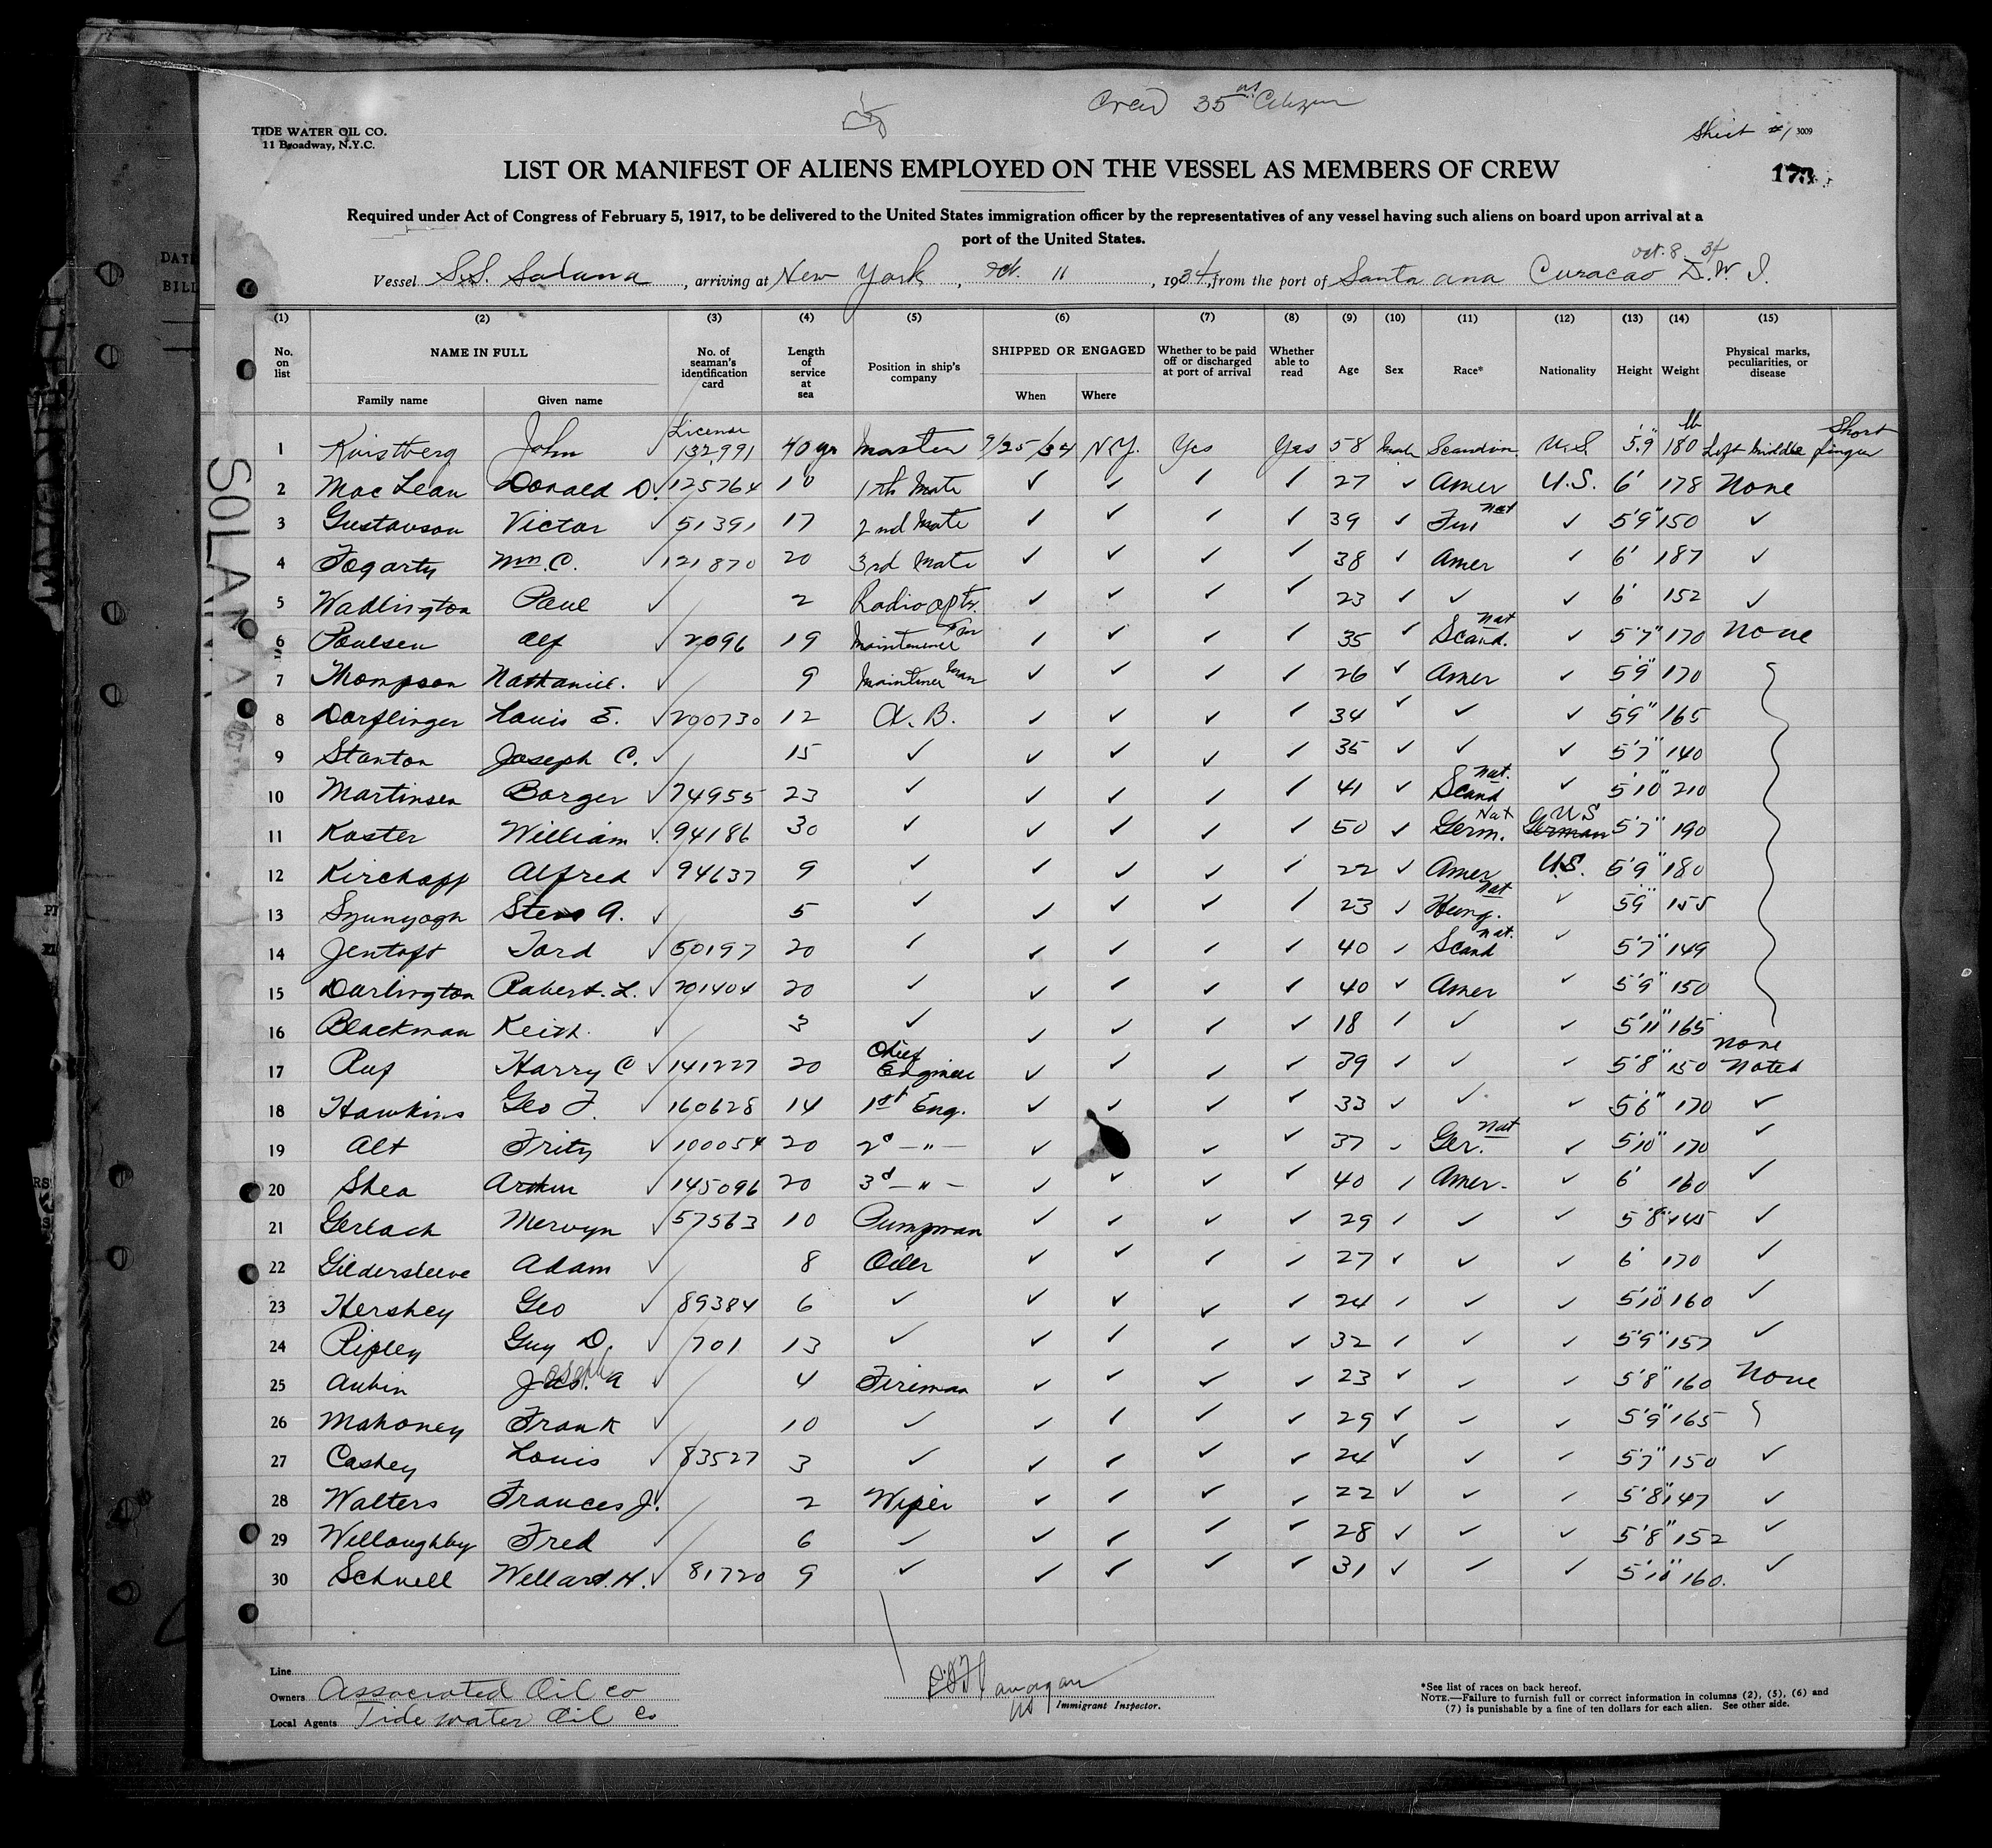 Crew 35 Citizen
TIDE WATER OIL CO.
11 Broadway, N.Y.C.
Sheet #1 3009
173
LIST OR MANIFEST OF ALIENS EMPLOYED ON THE VESSEL AS MEMBERS OF CREW
Required under Act of Congress of February 5, 1917, to be delivered to the United States immigration officer by the representatives of any vessel having such aliens on board upon arrival at a
port of the United States.
Oct. 8 34
Vessel S.S. Solana, arriving at New York, Oct. 11, 1934, from the port of Santa ana Curacao D.W.I.
(1) (2) (3) (4) (5) (6) (7) (8) (9) (10) (11) (12) (13) (14) (15)
No. on list NAME IN FULL No. of seaman's identification card Length of service at sea Position in ship's company SHIPPED OR ENGAGED Whether to be paid off or discharged at port of arrival Whether able to read Age Sex Race* Nationality Height Weight Physical marks, peculiarities, or disease
Family name Given name When Where
1 Kvistberg John ✓ License 132,991 40 yr Master 9/25/34 N.Y. Yes Yes 58 Male Scandin. U.S. 5'9" 180 lb Left middle finger Short
2 MacLean Donald D. ✓ 125764 10 1th Mate ✓ ✓ ✓ ✓ 27 ✓ Amer U.S. 6' 178 None
3 Gustavson Victor ✓ 51391 17 2nd Mate ✓ ✓ ✓ ✓ 39 ✓ Fin Nat ✓ 5'9" 150 ✓
4 Fogarty Wm. C. ✓ 121870 20 3rd Mate ✓ ✓ ✓ ✓ 38 ✓ Amer ✓ 6' 187 ✓
5 Wadlington Paul ✓ 2 Radio optr. ✓ ✓ ✓ ✓ 23 ✓ ✓ ✓ 6' 152 ✓
6 Poulsen Alf ✓ 2096 19 Maintenance ✓ ✓ ✓ ✓ 35 ✓ Scand. Nat ✓ 5'7" 170 None
7 Thompson Nathaniel. ✓ 9 Maintener man ✓ ✓ ✓ ✓ 26 ✓ Amer ✓ 5'9" 170
8 Dorflinger Louis E. ✓ 200730 12 A.B. ✓ ✓ ✓ ✓ 34 ✓ ✓ ✓ 5'9" 165
9 Stanton Joseph C. ✓ 15 ✓ ✓ ✓ ✓ ✓ 35 ✓ ✓ ✓ 5'7" 140
10 Martinsen Borger ✓ 74955 23 ✓ ✓ ✓ ✓ ✓ 41 ✓ Scand Nat. ✓ 5'10" 210
11 Koster William ✓ 94186 30 ✓ ✓ ✓ ✓ ✓ 50 ✓ Germ. Nat German U.S 5'7" 190
12 Kirchoff Alfred ✓ 94637 9 ✓ ✓ ✓ ✓ ✓ 22 ✓ Amer U.S. 5'9" 180
13 Szunyogh Steve A. ✓ 5 ✓ ✓ ✓ ✓ ✓ 23 ✓ Hung. Nat ✓ 5'9" 155
14 Jentoft Tord ✓ 50197 20 ✓ ✓ ✓ ✓ ✓ 40 ✓ Scand Nat. ✓ 5'7" 149
15 Darlington Robert L. ✓ 201404 20 ✓ ✓ ✓ ✓ ✓ 40 ✓ Amer ✓ 5'9" 150
16 Blackman Keith. ✓ 3 ✓ ✓ ✓ ✓ ✓ 18 ✓ ✓ ✓ 5'11" 165
17 Ruf Harry C ✓ 141227 20 Chief Engineer ✓ ✓ ✓ ✓ 39 ✓ ✓ ✓ 5'8" 150 None Noted
18 Hawkins Geo F. ✓ 160628 14 1st Eng. ✓ ✓ ✓ ✓ 33 ✓ ✓ ✓ 5'6" 170 ✓
19 Alt Fritz ✓ 100054 20 2d — " — ✓ ✓ ✓ 37 ✓ Ger. Nat ✓ 5'10" 170 ✓
20 Shea Arthur ✓ 145096 20 3d — " — ✓ ✓ ✓ ✓ 40 ✓ Amer. ✓ 6' 160 ✓
21 Gerlach Mervyn ✓ 57563 10 Pumpman ✓ ✓ ✓ ✓ 29 ✓ ✓ ✓ 5'8" 145 ✓
22 Gildersleeve Adam ✓ 8 Oiler ✓ ✓ ✓ ✓ 27 ✓ ✓ ✓ 6' 170 ✓
23 Hershey Geo ✓ 89384 6 ✓ ✓ ✓ ✓ ✓ 24 ✓ ✓ ✓ 5'10" 160 ✓
24 Ripley Guy D. ✓ 701 13 ✓ ✓ ✓ ✓ ✓ 32 ✓ ✓ ✓ 5'9" 157 ✓
25 Aubin Joseph A ✓ 4 Fireman ✓ ✓ ✓ ✓ 23 ✓ ✓ ✓ 5'8" 160 None
26 Mahoney Frank ✓ 10 ✓ ✓ ✓ ✓ ✓ 29 ✓ ✓ ✓ 5'9" 165
27 Caskey Louis ✓ 83527 3 ✓ ✓ ✓ ✓ ✓ 24 ✓ ✓ ✓ 5'7" 150 ✓
28 Walters Frances J. ✓ 2 Wiper ✓ ✓ ✓ ✓ 22 ✓ ✓ ✓ 5'8" 147 ✓
29 Willoughby Fred ✓ 6 ✓ ✓ ✓ ✓ ✓ 28 ✓ ✓ ✓ 5'8" 152 ✓
30 Schnell Wellard. H. ✓ 81720 9 ✓ ✓ ✓ ✓ ✓ 31 ✓ ✓ ✓ 5'10" 160. ✓
Line
Owners Associated Oil Co
Local Agents Tide Water Oil Co
Immigrant Inspector.
*See list of races on back hereof.
NOTE.—Failure to furnish full or correct information in columns (2), (5), (6) and
(7) is punishable by a fine of ten dollars for each alien. See other side.
SOLANA